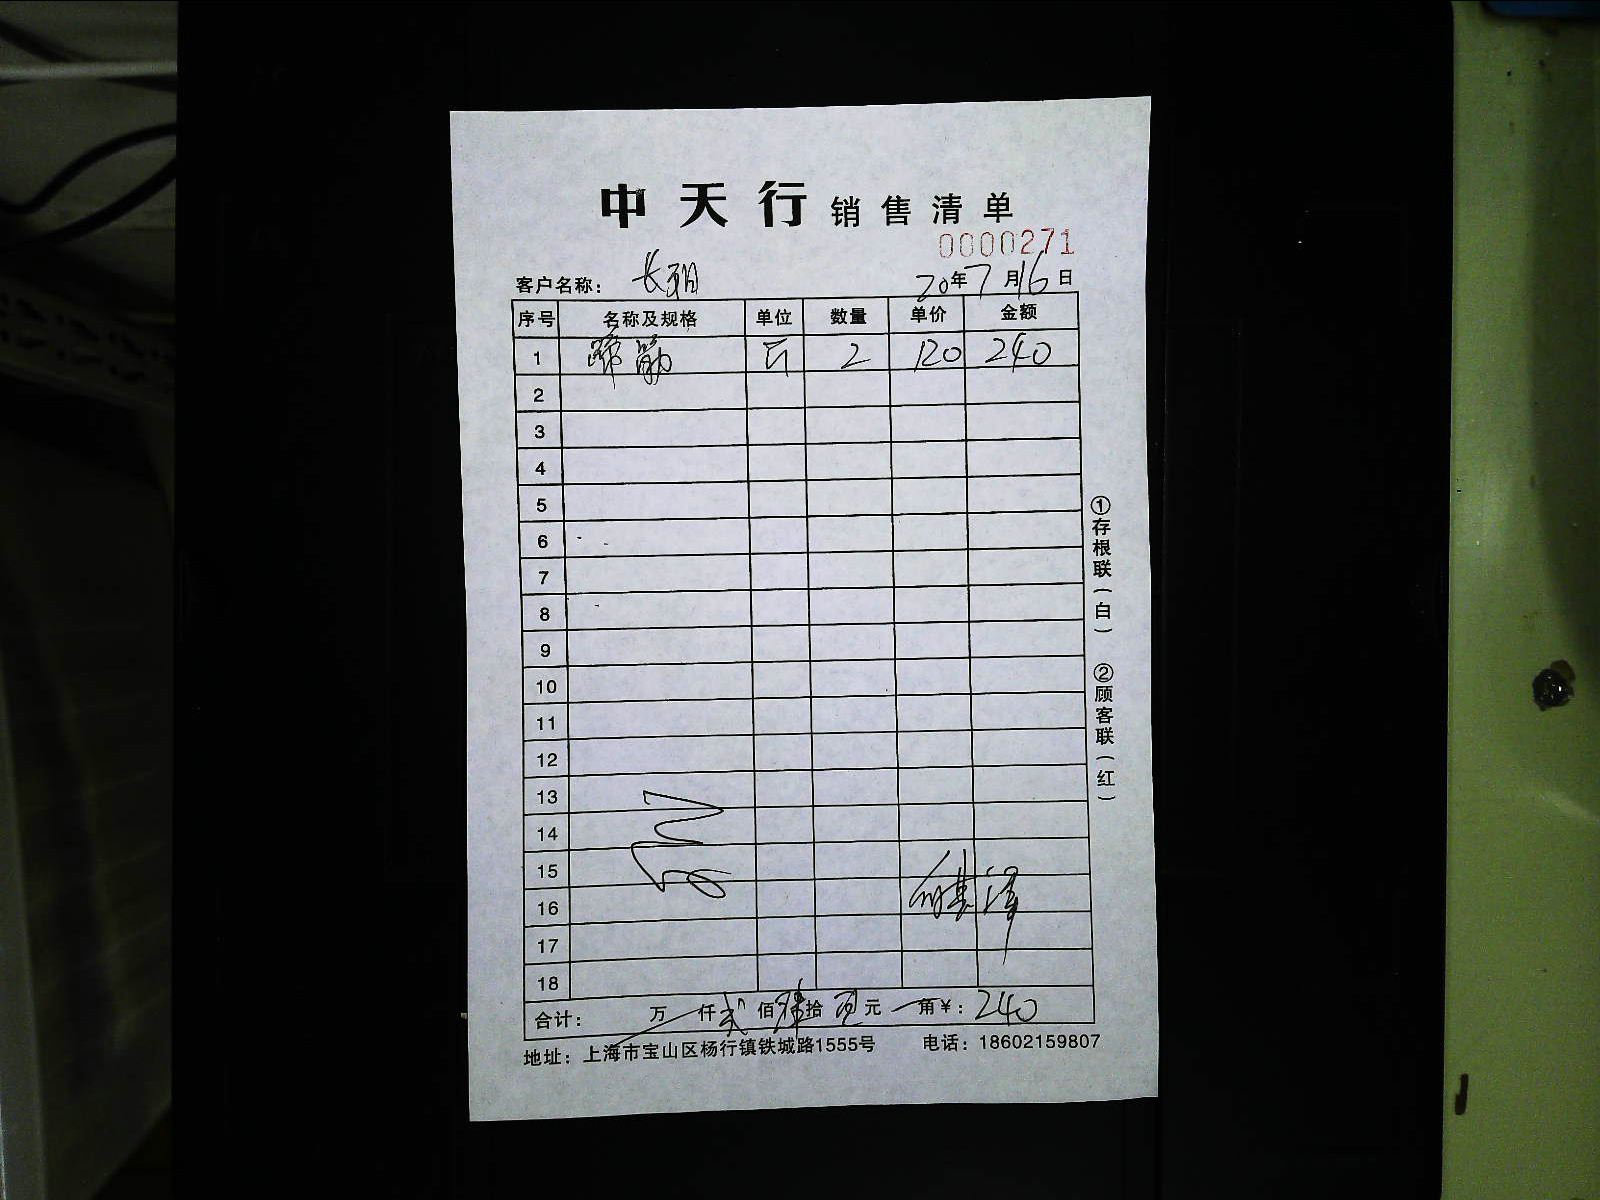 中天行 销售清单
0000271
客户名称： 长翔 20年7月16日
序号 名称及规格 单位 数量 单价 金额
1 蹄筋 斤 2 120 240
2
3
4
5
6
7
8
9
10
11
12
13
14
15
16
17
18
合计： 万 仟 贰 佰 肆 拾 元 角 ￥：240
地址：上海市宝山区杨行镇铁城路1555号 电话：18602159807
①存根联（白） ②顾客联（红）